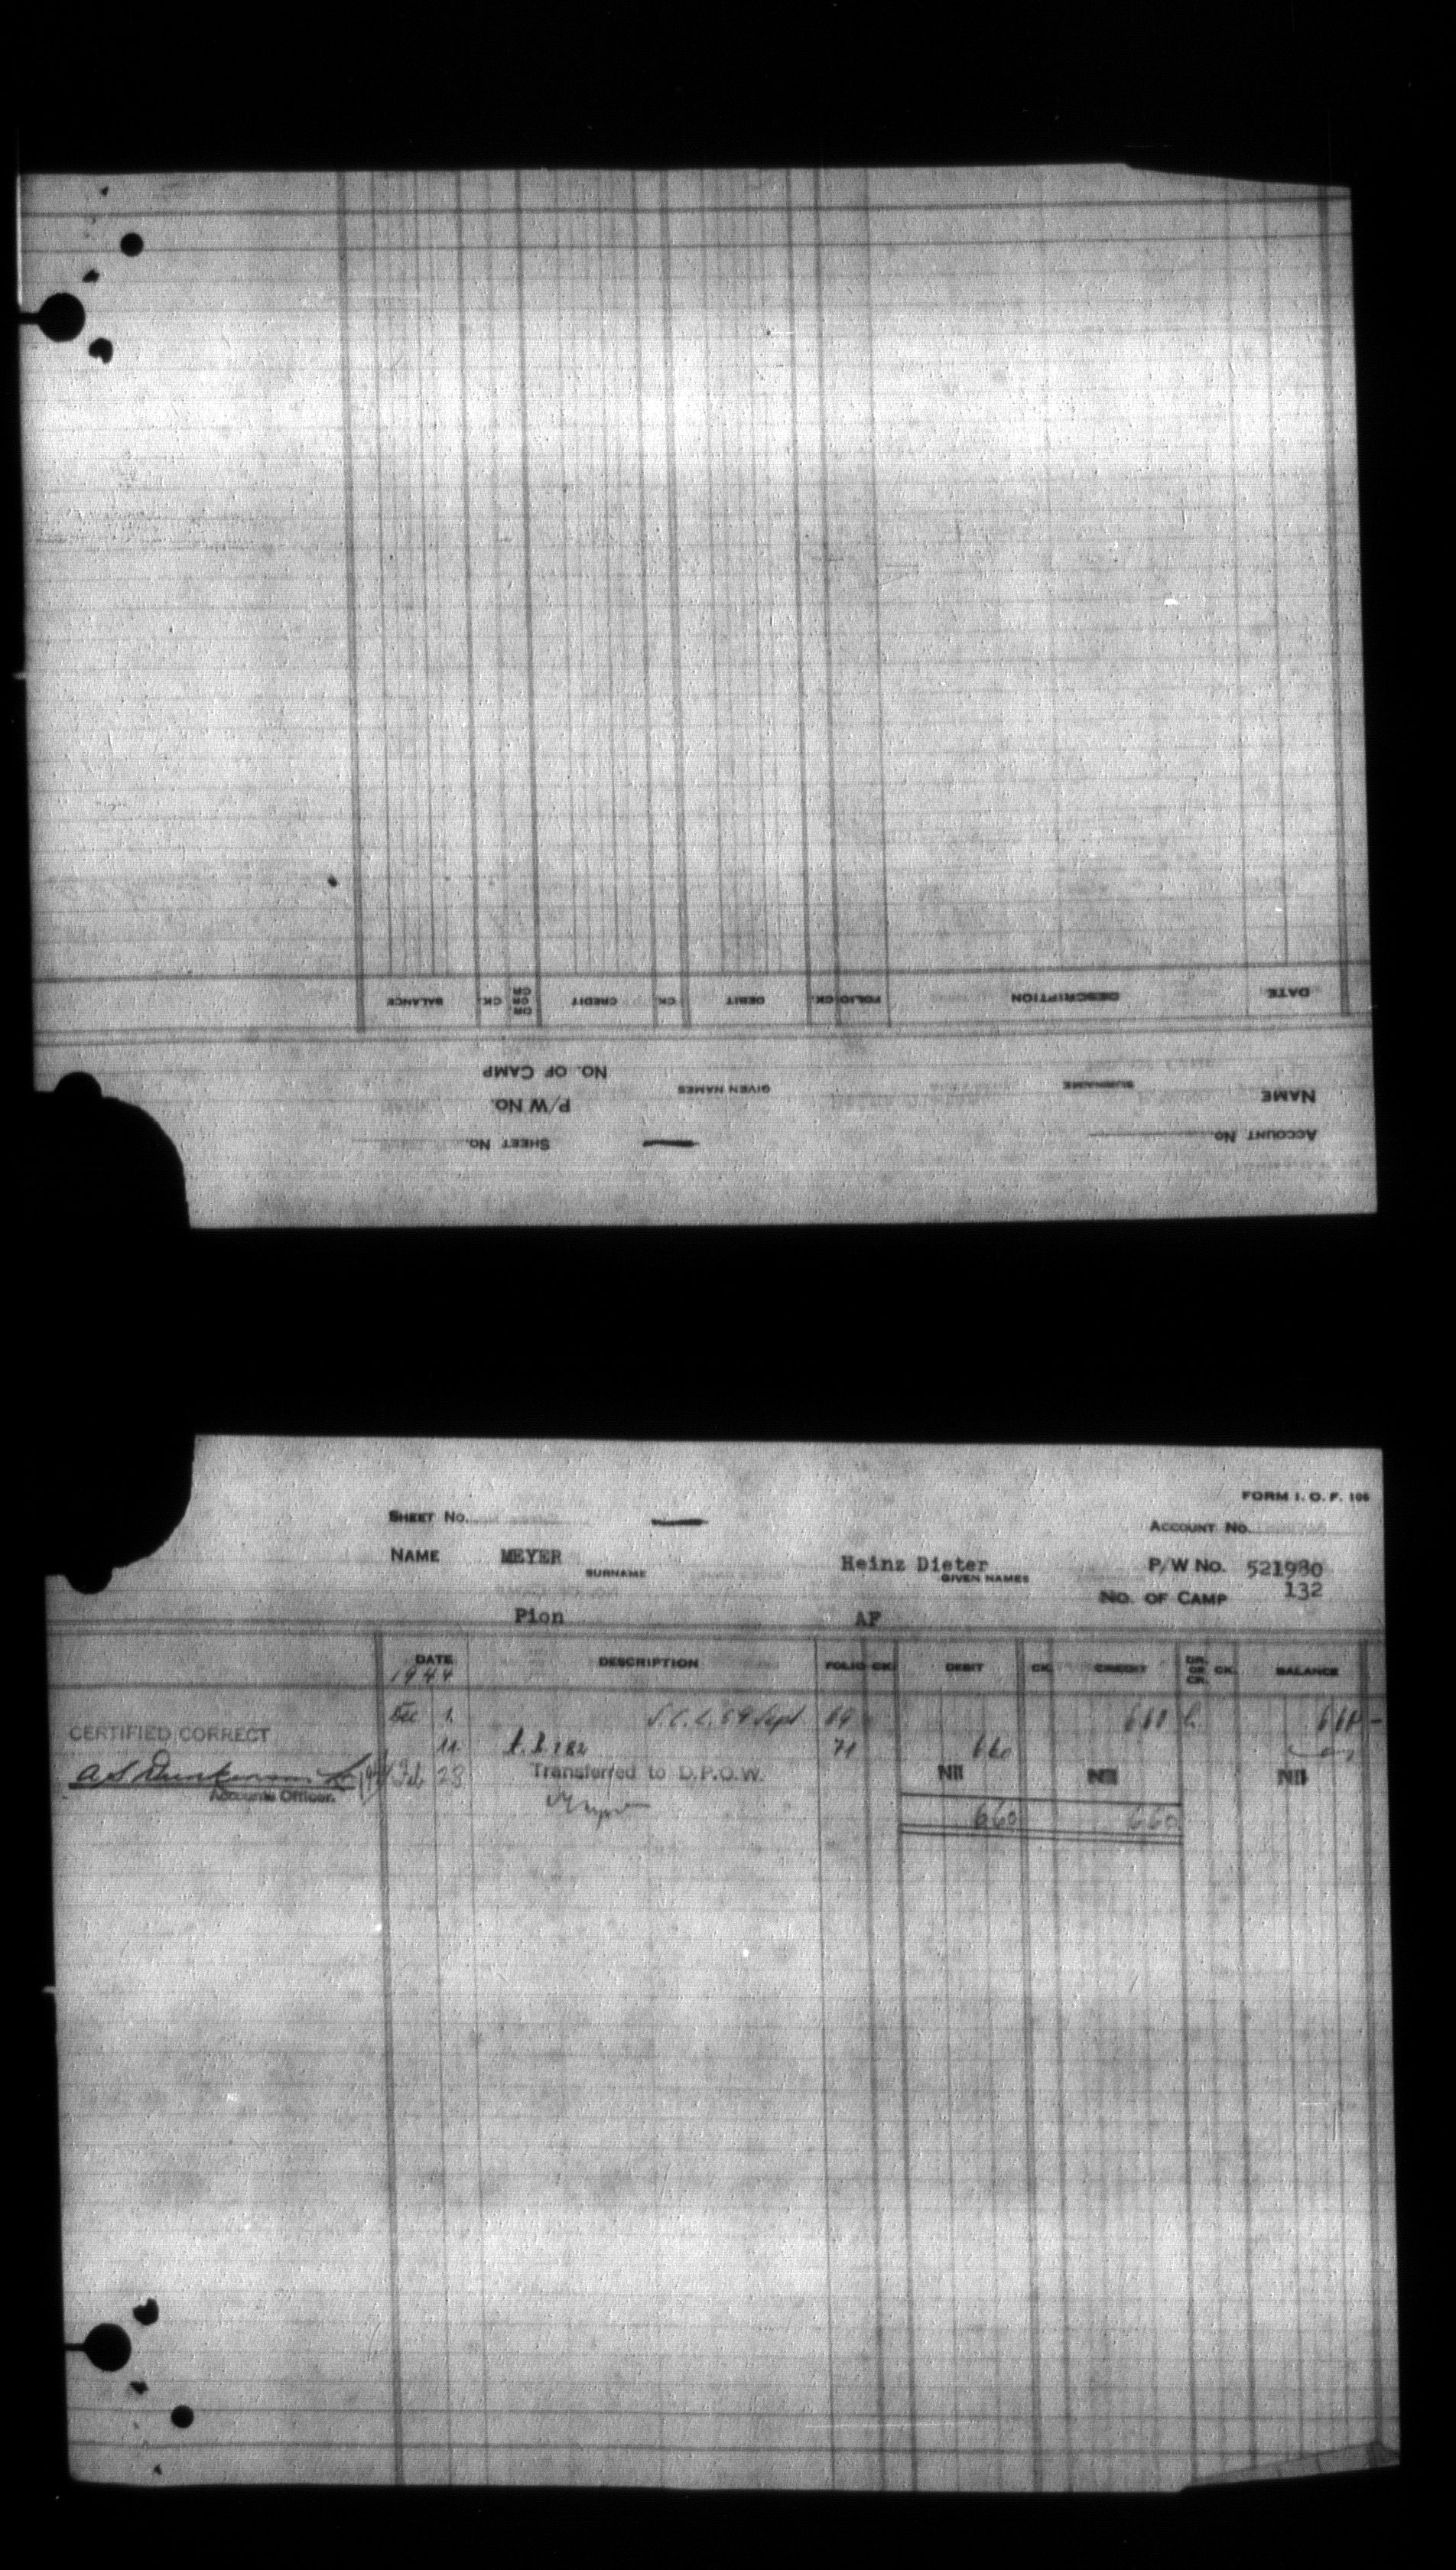 DATE DESCRIPTION FOLIO CK. DEBIT CK. CREDIT DR. OR CR. CK. BALANCE
NAME SURNAME GIVEN NAMES NO. OF CAMP
P/W NO.
ACCOUNT NO. SHEET NO.
FORM I. O. F. 106
SHEET NO. ACCOUNT NO.
NAME MEYER Heinz Dieter P/W NO. 521980
SURNAME GIVEN NAMES
NO. OF CAMP 132
Pion AF
DATE DESCRIPTION FOLIO CK. DEBIT CK. CREDIT DR. OR CR. CK. BALANCE
1944
Dec 1. Sept 69 660 660
CERTIFIED CORRECT
11. 182 71 660
Feb 23 Transferred to D.P.O.W. Nil Nil Nil
Accounts Officer.
660 660